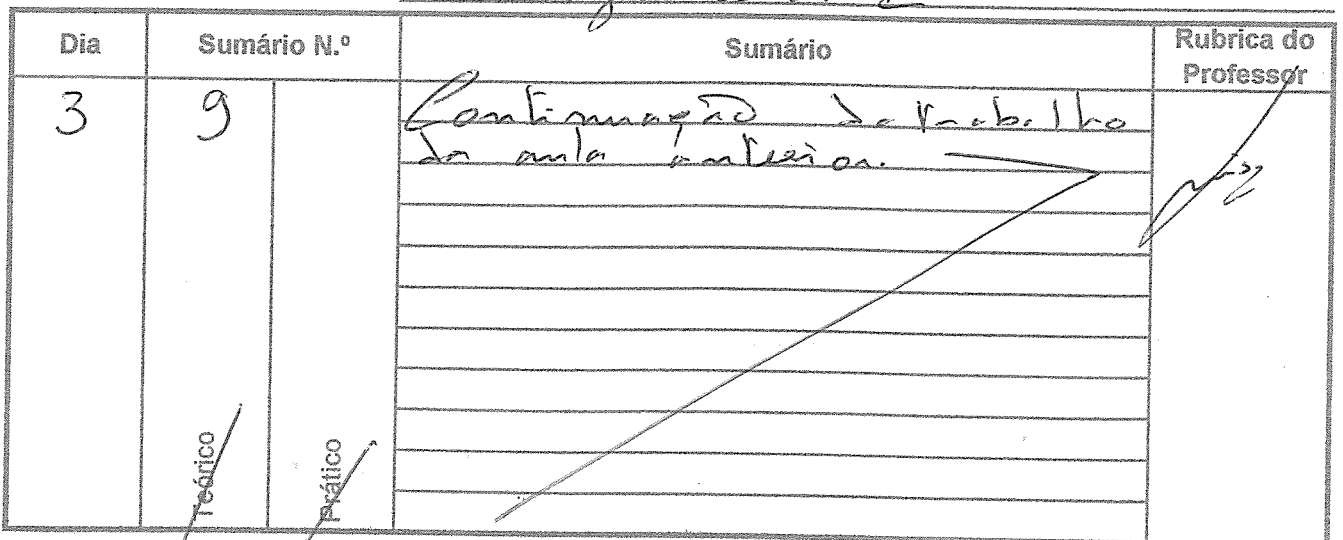 Dia Sumário N.º Sumário Rubrica do Professor
3 9 Continuação do trabalho
da aula anterior.
Teórico Prático